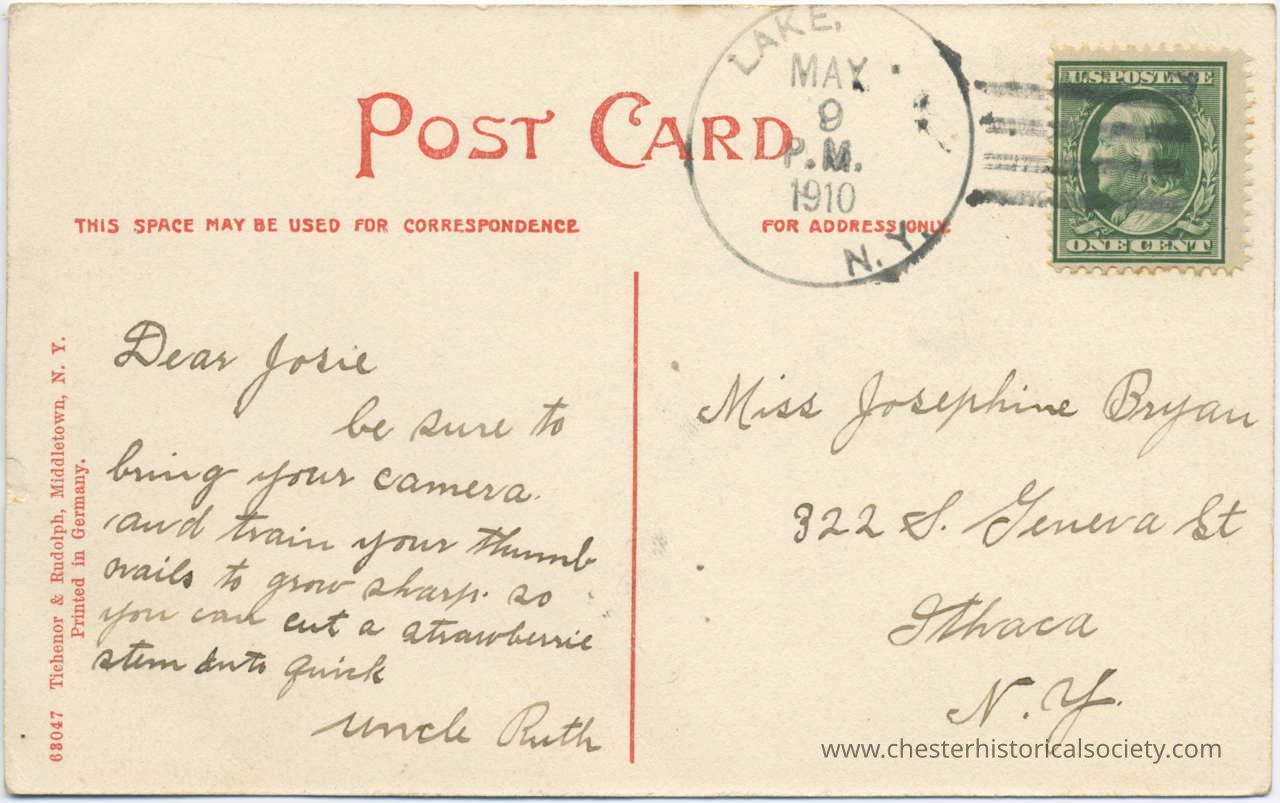 POST CARD
THIS SPACE MAY BE USED FOR CORRESPONDENCE
FOR ADDRESS ONLY.
LAKE,
MAY
9
P.M.
1910
N.Y.
U.S. POSTAGE
ONE CENT
63047 Tichenor & Rudolph, Middletown, N. Y.
Printed in Germany.
Dear Josie
be sure to
bring your camera.
and train your thumb
nails to grow sharp. so
you can cut a strawberrie
stem quick
Uncle Ruth
Miss Josephine Bryan
322 S. Geneva St
Ithaca
N.Y.
www.chesterhistoricalsociety.com